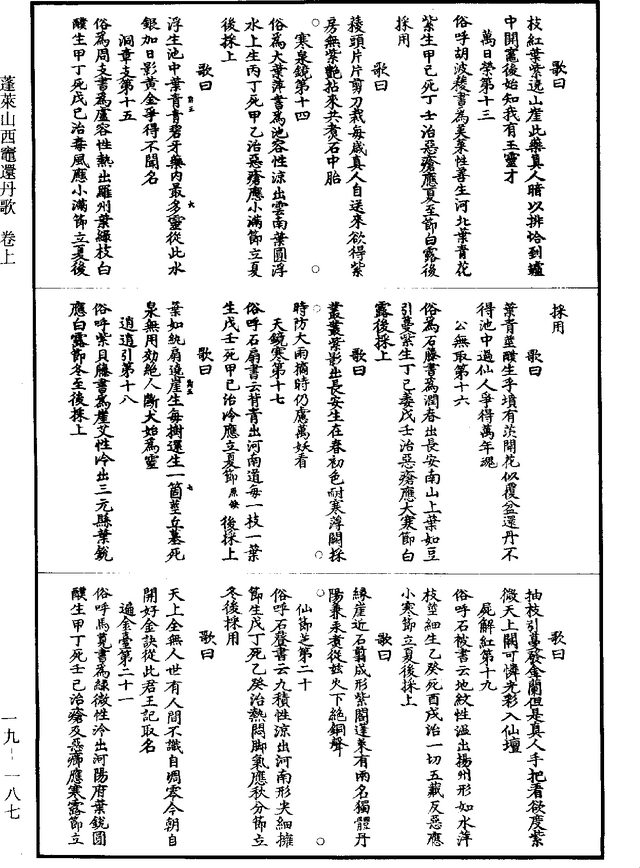 歌曰
枝紅葉紫遶山崖此藥真人暗以排恰到爐
中開竈後始知我有玉靈才
萬日榮第十三
俗呼胡波稜書為芙萊性善生河北葉青花
紫生甲己死丁士治惡瘡應夏至節白露後
採用
歌曰
稜頭片片剪刀裁每歲真人自送來欲得紫
房無紫艷拈來共煮石中胎
寒泉鏡第十四
俗為大葉萍書為池容性涼出雲南葉圓浮
水上生丙丁死甲乙治惡瘡應小滿節立夏
後採上
歌曰
浮生池中葉青青碧牙藥內最多靈從此水
銀加日影黃金爭得不聞名
洞章支第十五
俗為周支書為蘆容性熱出羅州葉綠枝白
釀生甲丁死戊己治毒風應小滿節立夏後
採用
歌曰
葉青莖釀生手墳有茨開花似覆盆還丹不
得池中過仙人爭得萬年魂
公無取第十六
俗為石藤書為潤春出長安南山上葉如豆
引蔓紫生丁己委戊壬治惡瘡應大寒節白
露後採上
歌曰
叢叢紫影出長安生在春初色耐寒薄闕採
時防大雨摘時仍慮萬妖看
天鏡寒第十七
俗呼石扇書云背青出河南道每一枝一葉
生戊壬死甲己治冷應立夏節原缺後採上
歌曰
葉如紈扇遶崖生每樹還生一箇莖丘墓死
泉無用効絕人斷犬始為靈
逍遙引第十八
俗呼紫貝藤書為崖艾性冷出三元縣葉銳
應白露節冬至後採上
歌曰
抽枝引蔓發金蘭但是真人手把看欲度紫
微天上闕可憐光彩入仙壇
屍解紅第十九
俗呼石被書云地紋性溫出揚州形如水萍
枝莖細生乙癸死酉戌治一切五藏反惡應
小寒節立夏後採上
歌曰
緣崖近石翦成形紫閣蓬萊有兩名獨體丹
陽兼汞煮從茲火下絕銅聲
仙節芝第二十
俗呼石登書云九積性涼出河南形尖細擁
節生戊丁死乙癸治熱悶脚氣應秋分節立
冬後採用
歌曰
天上全無人世有人間不識自凋零今朝自
開好金訣從此君王記取名
遍金臺第二十一
俗呼馬莧書為綠微性冷出河陽府葉銳圓
釀生甲丁死壬己治瘡及惡痹應寒露節立
蓬萊山西竈還丹歌 卷上
一九-一八七